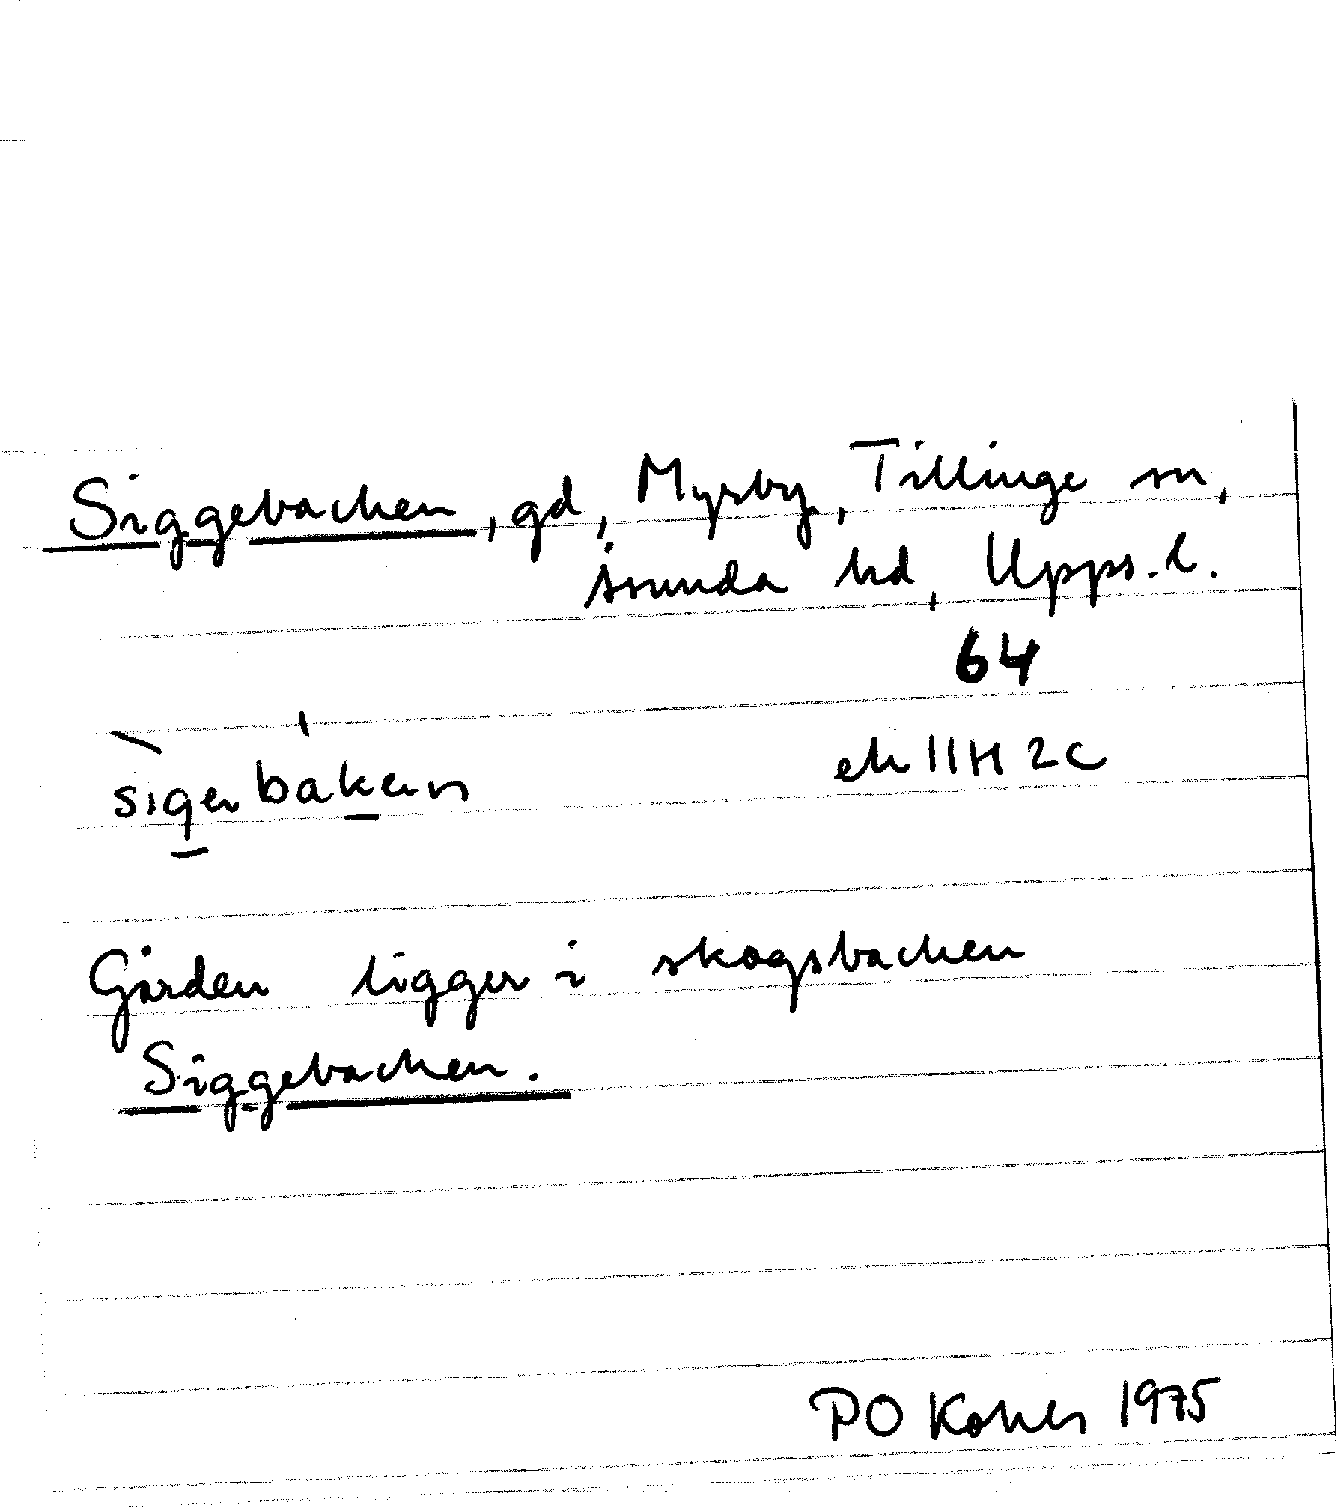 Siggebacken, gd, Myrby, Tillinge sn,
Åsunda hd, Upps. l.
64
ek 11H 2c
Gården ligger i skogsbacken
Siggebacken.
PO 1975